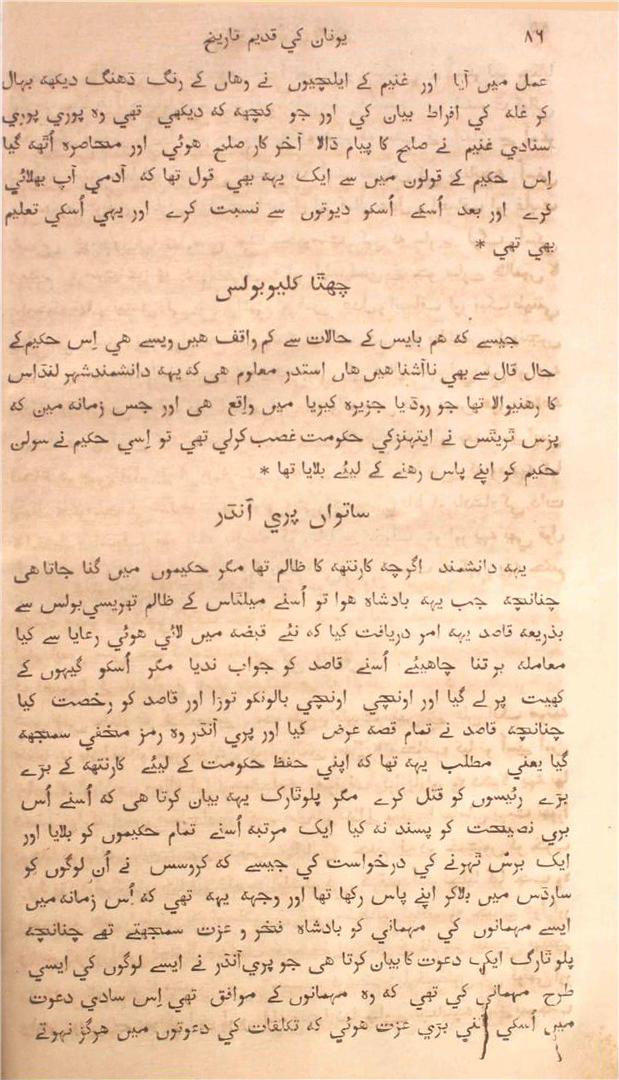 یونان کي قدیم تاریخ ۸۶
عمل میں آیا اور غنیم کے ایلچیوں نے وھاں کے رنگ ڈھنگ دیکھہ بہال
کر غلہ کي افراط بیان کي اور جو کچھہ کہ دیکھي تھي وہ پوري پوري
سنادي غنیم نے صلح کا پیام ڈالا آخر کار صلح ھوئي اور محاصرہ اُٹھہ گیا
اِس حکیم کے قولوں میں سے ایک یہہ بھي قول تھا کہ آدمي آپ بھلائي
کرے اور بعد اُسکے اُسکو دیوتوں سے نسبت کرے اور یہي اُسکي تعلیم
بھي تھي *
چھٹا کلیوبولس
جیسے کہ ھم بایس کے حالات سے کم واقف ھیں ویسے ھي اِس حکیم کے
حال قال سے بھي ناآشنا ھیں ھاں اسقدر معلوم ھي کہ یہہ دانشمند شہر لنڈاس
کا رھنیوالا تھا جو روڈیا جزیرہ کیریا میں واقع ھي اور جس زمانہ میں کہ
پزس ٹریٹس نے ایتھنز کي حکومت غصب کرلي تھي تو اِسي حکیم نے سولن
حکیم کو اپنے پاس رھنے کے لیئے بلایا تھا *
ساتواں پري آنڈر
یہہ دانشمند اگرچہ کارنتھہ کا ظالم تھا مگر حکیموں میں گنا جاتا ھی
چنانچہ جب یہہ بادشاہ ھوا تو اُسنے میلٹاس کے ظالم تھریسي بولس سے
بذریعہ قاصد یہہ امر دریافت کیا کہ نئے قبضہ میں لائي ھوئي رعایا سے کیا
معاملہ برتنا چاھیئے اُسنے قاصد کو جواب ندیا مگر اُسکو گیہوں کے
کھیت پر لے گیا اور اونچي اونچي بالونکو توڑا اور قاصد کو رخصت کیا
چنانچہ قاصد نے تمام قصہ عرض کیا اور پري آنڈر وہ رمز مخفي سمجھہ
گیا یعني مطلب یہہ تھا کہ اپني حفظ حکومت کے لیئے کارنتھہ کے بڑے
بڑے رئیسوں کو قتل کرے مگر پلوٹارک یہہ بیان کرتا ھی کہ اُسنے اُس
بري نصیحت کو پسند نہ کیا ایک مرتبہ اُسنے تمام حکیموں کو بلایا اور
ایک برس ٹہرنے کي درخواست کي جیسے کہ کروسس نے اُن لوگوں کو
سارڈس میں بلاکر اپنے پاس رکھا تھا اور وجہہ یہہ تھي کہ اُس زمانہ میں
ایسے مہمانوں کي مہماني کو بادشاہ فخر و عزت سمجھتے تھے چنانچہ
پلوٹارگ ایک دعوت کا بیان کرتا ھی جو پري آنڈر نے ایسے لوگوں کي ایسي
طرح مہماني کي تھي کہ وہ مہمانوں کے موافق تھي اِس سادي دعوت
میں اُسکي اتني بڑي عزت ھوئي کہ تکلفات کي دعوتوں میں ھرگز نہوتے